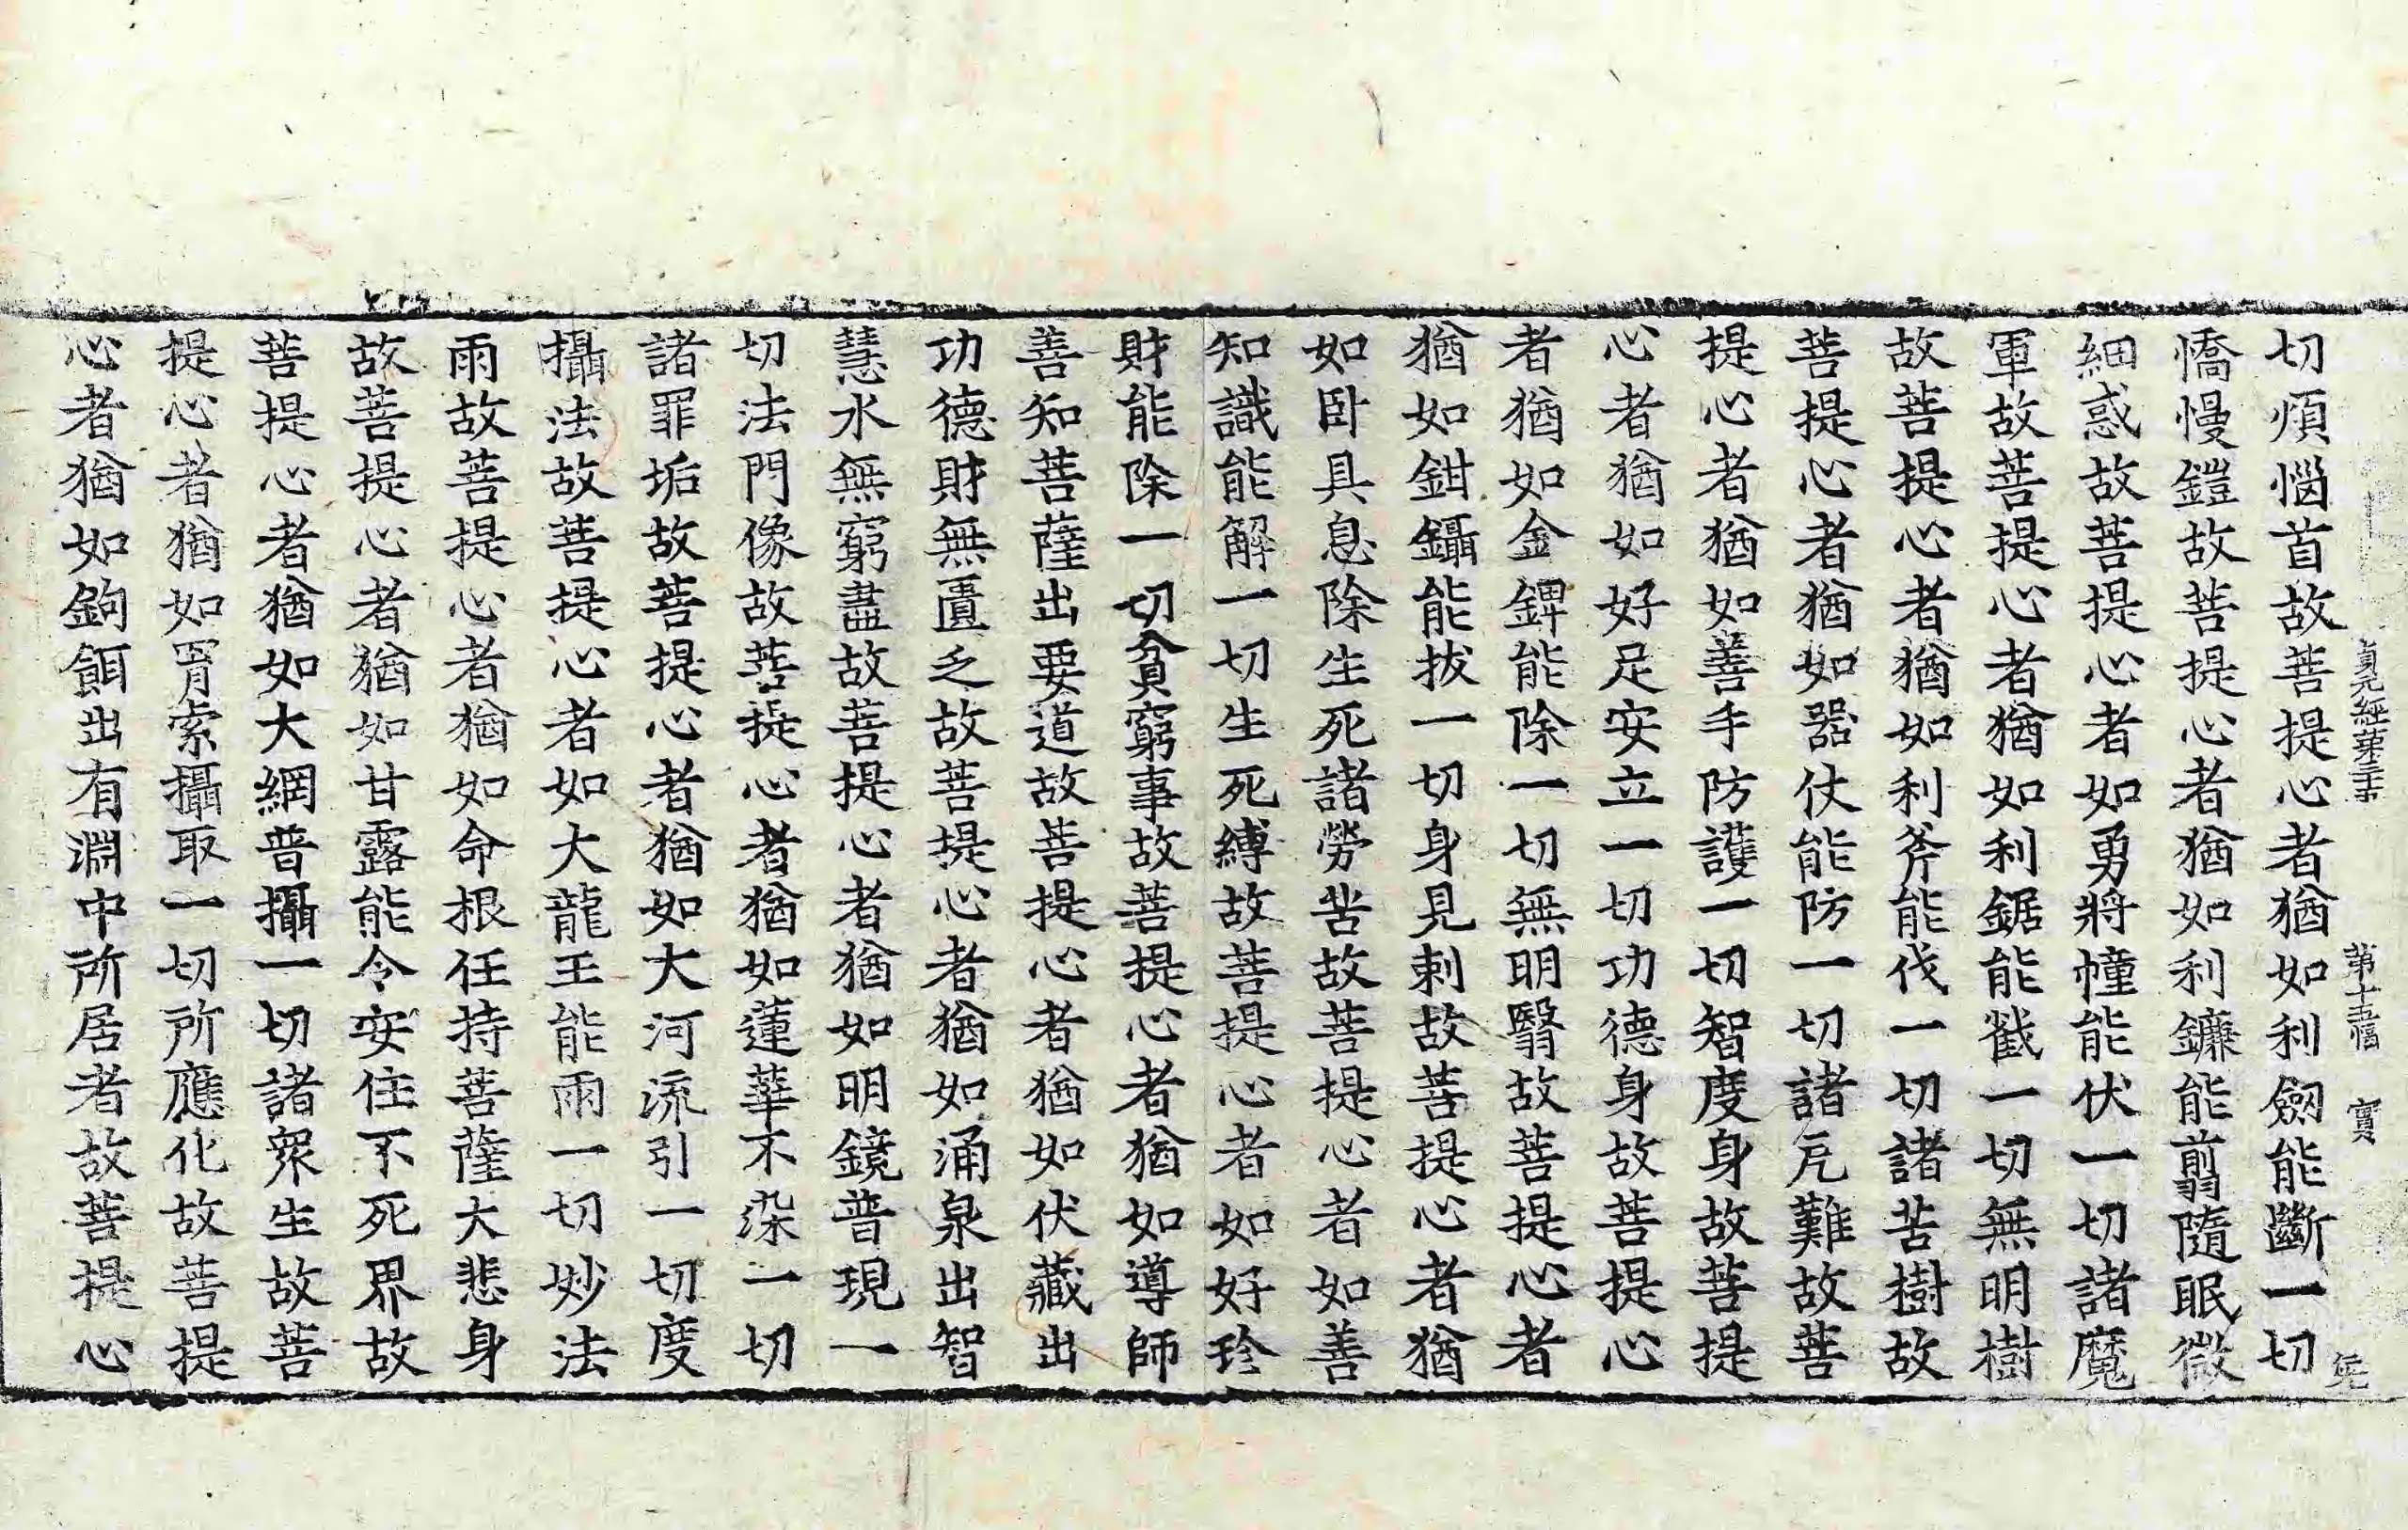 貞元經第三十五 第十五幅 實
切煩惱首故菩提心者猶如利劒能斷一切
憍慢鎧故菩提心者猶如利鐮能剪隨眠微
細惑故菩提心者如勇將幢能伏一切諸魔
軍故菩提心者猶如利鋸能截一切無明樹
故菩提心者猶如利斧能伐一切諸苦樹故
菩提心者猶如器仗能防一切諸厄難故菩
提心者猶如善手防護一切智度身故菩提
心者猶如好足安立一切功德身故菩提心
者猶如金錍能除一切無明翳故菩提心者
猶如鉗鑷能拔一切身見刺故菩提心者猶
如卧具息除生死諸勞苦故菩提心者如善
知識能解一切生死縛故菩提心者如好珍
財能除一切貧窮事故菩提心者猶如導師
善知菩薩出要道故菩提心者猶如伏藏出
功德財無匱乏故菩提心者猶如涌泉出智
慧水無窮盡故菩提心者猶如明鏡普現一
切法門像故菩提心者猶如蓮華不染一切
諸罪垢故菩提心者猶如大河流引一切度
攝法故菩提心者如大龍王能雨一切妙法
雨故菩提心者猶如命根任持菩薩大悲身
故菩提心者猶如甘露能令安住不死界故
菩提心者猶如大網普攝一切諸眾生故菩
提心者猶如罥索攝取一切所應化故菩提
心者猶如鉤餌出有淵中所居者故菩提心